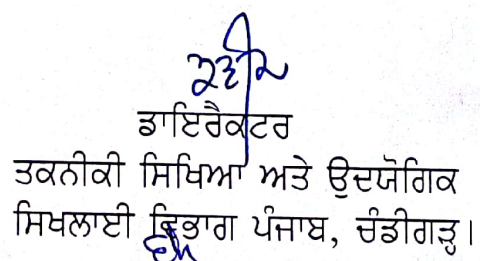 ਡਾਇਰੈਕਟਰ
ਤਕਨੀਕੀ ਸਿਖਿਆ ਅਤੇ ਉਦਯੋਗਿਕ
ਸਿਖਲਾਈ ਵਿਭਾਗ ਪੰਜਾਬ, ਚੰਡੀਗੜ੍ਹ।